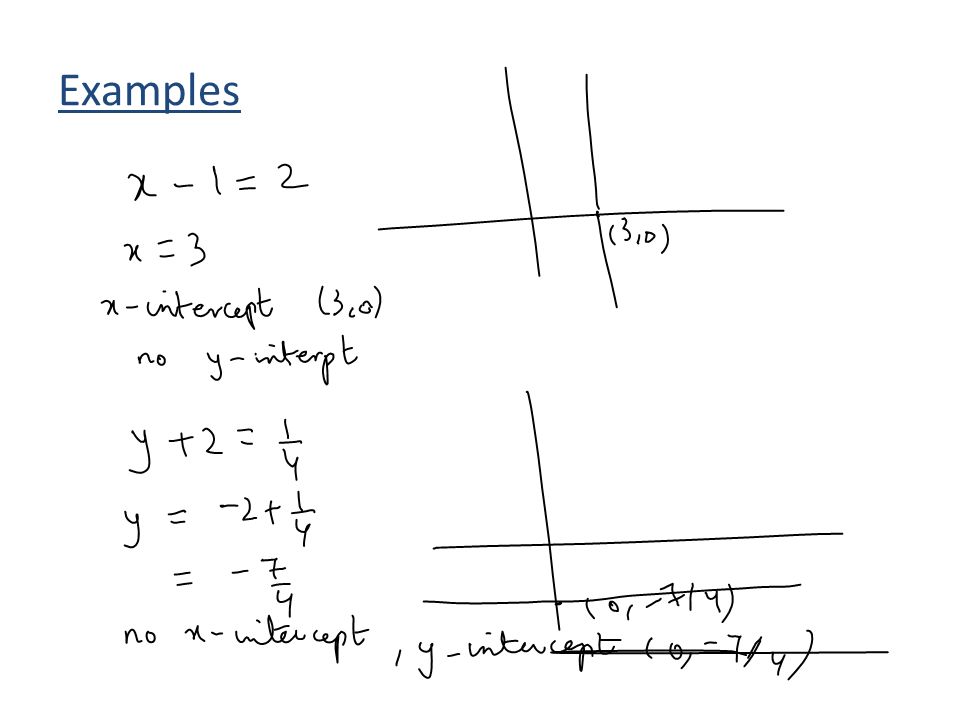 Examples
x - 1 = 2
x = 3
x-intercept (3,0)
no y-interpt
(3,0)
y + 2 = 1/4
y = -2 + 1/4
= -7/4
(0, -7/4)
no x-intercept, y-intercept (0, -7/4)